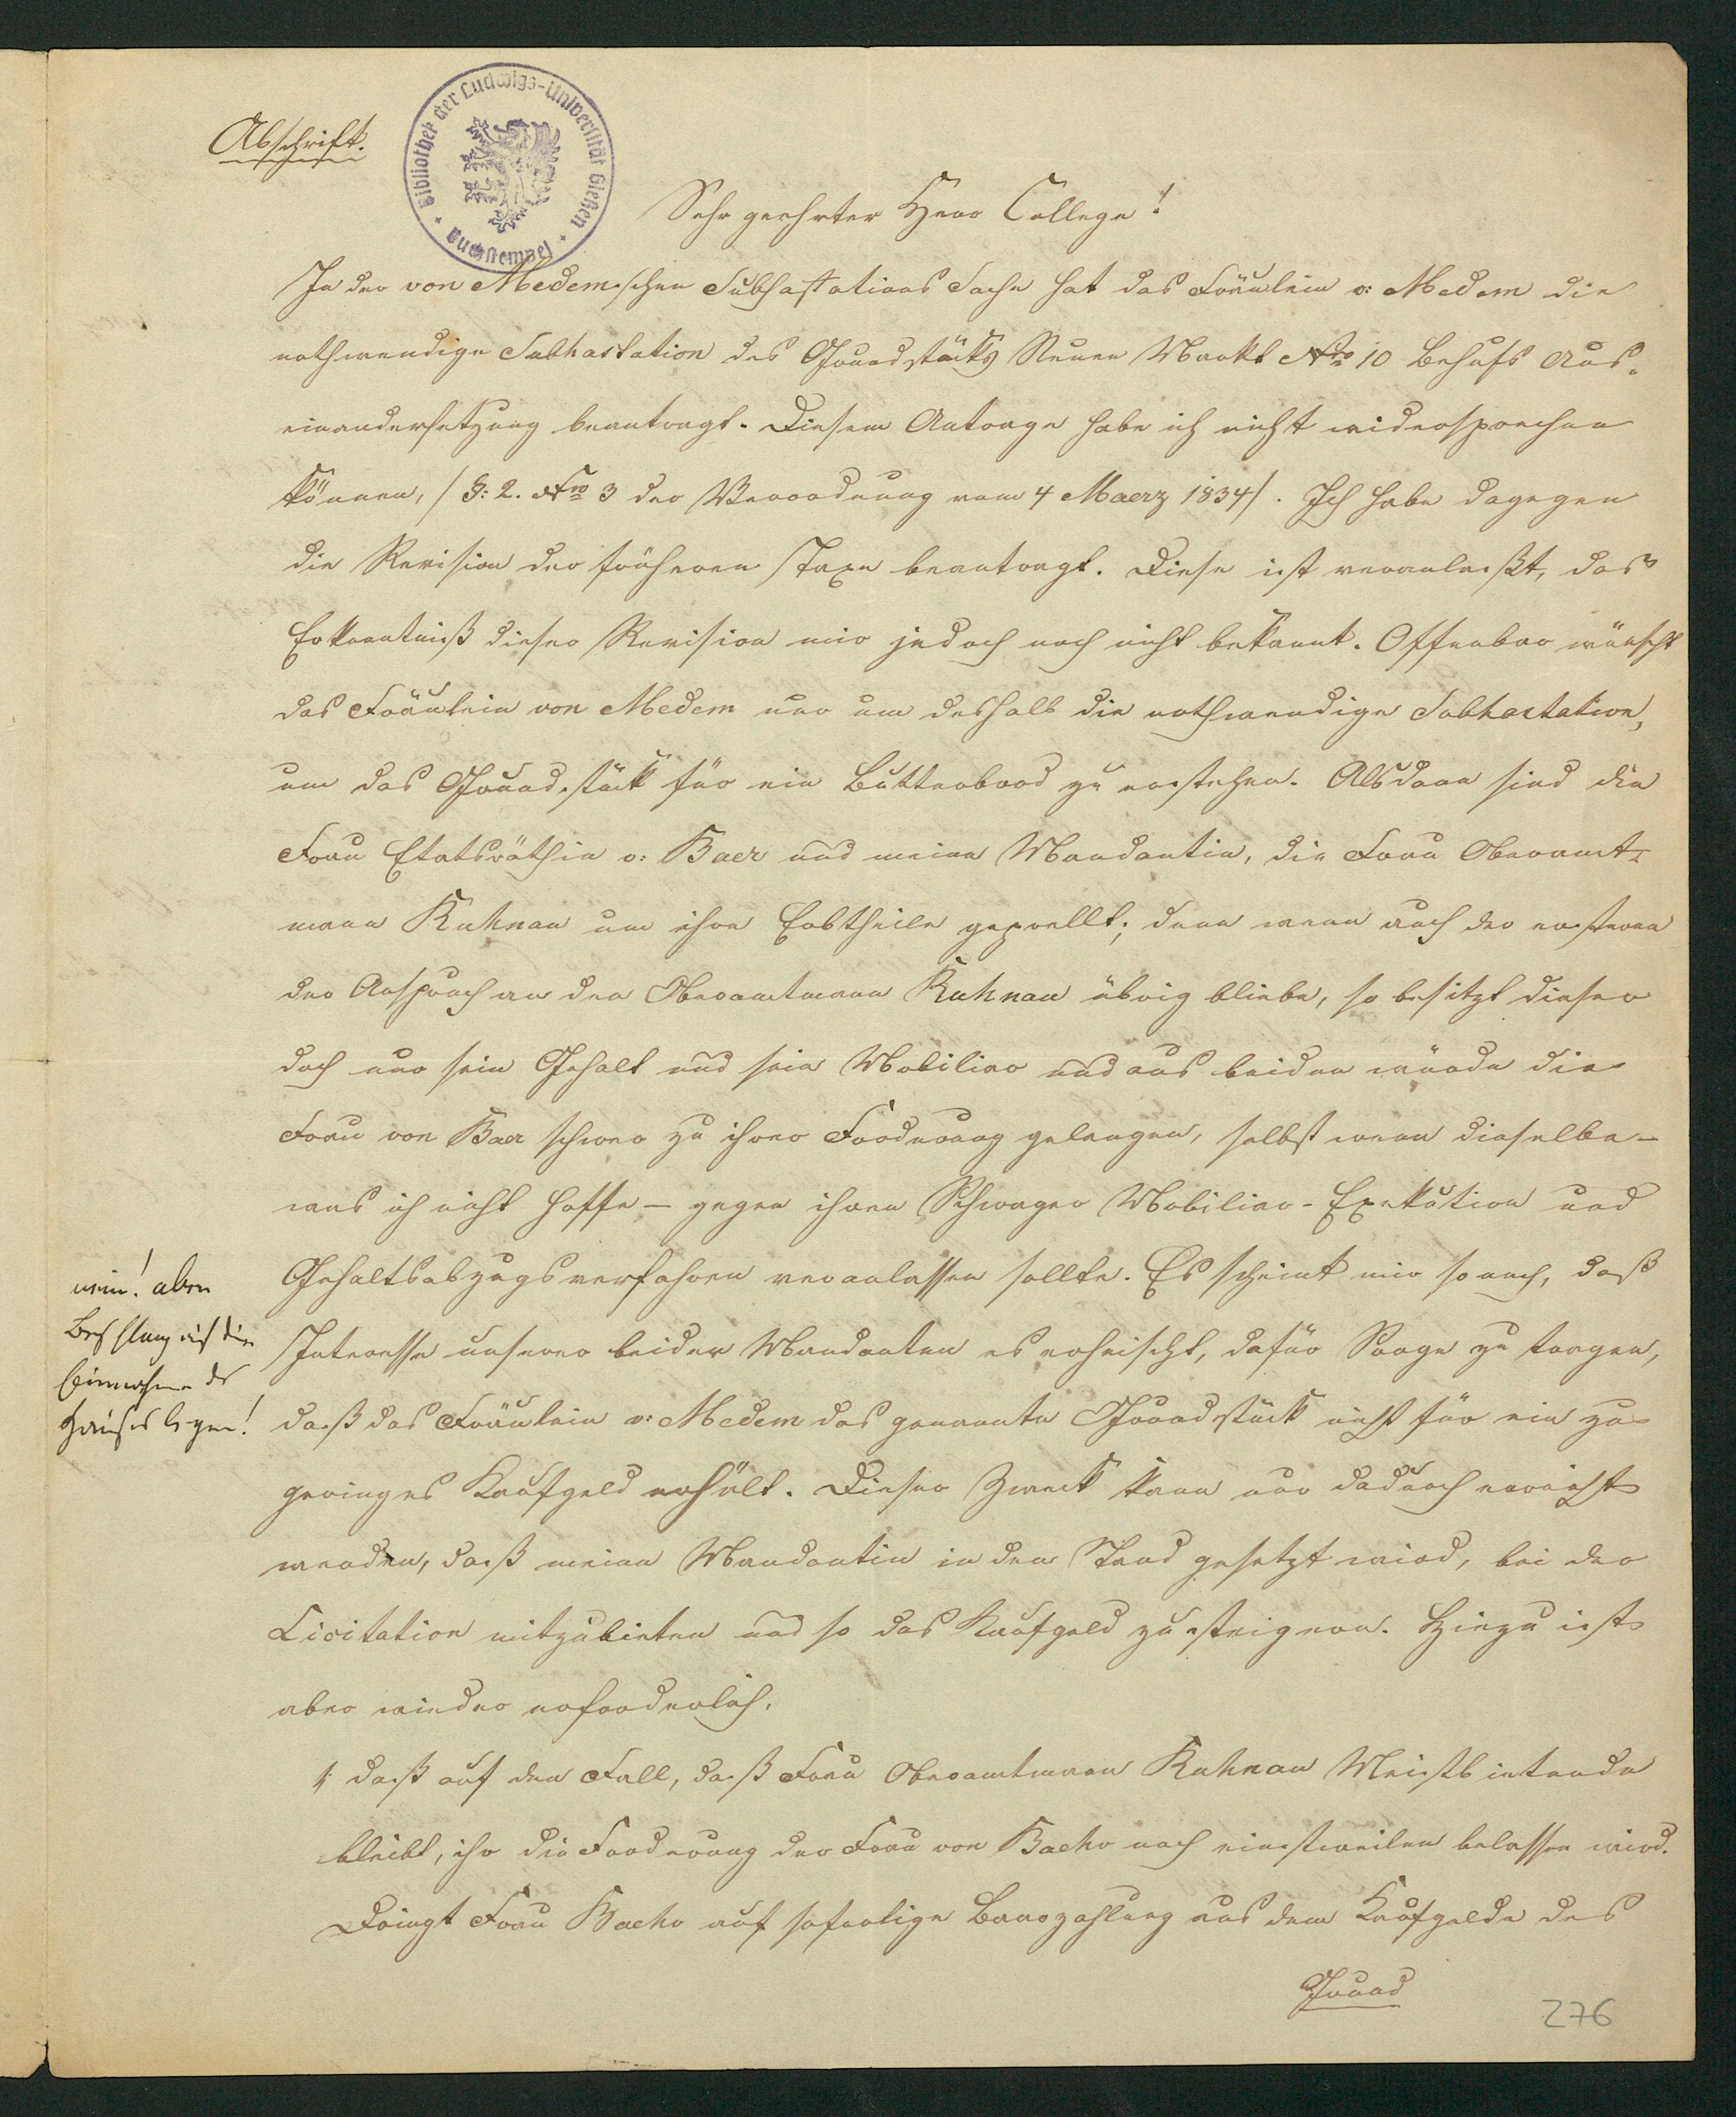 Abschrift.
Bibliothek der Ludwigs-Universität Gießen
Sehr geehrter Herr College!
In der von Medemschen Subhastations Sache hat das Fräulein v: Medem die
nothwendige Subhastation des Grundstücks Neuen Markt Nro 10 Behufs Aus-
einandersetzung beantragt. Diesem Antrage habe ich nicht widersprechen
können, /§: 2. Nro 3 der Verordnung vom 4 Maerz 1834/. Ich habe dagegen
die Revision der früheren Taxe beantragt. Diese ist veranlaßt, das
Erkenntniß dieser Revision mir jedoch noch nicht bekannt. Offenbar wünscht
das Fräulein von Medem nur um deshalb die nothwendige Subhastation,
um das Grundstück für ein Butterbrod zu erstehen. Alsdann sind die
Frau Etatsräthin v: Baer und meine Mandantin, die Frau Oberamt-
mann Kuhnau um ihre Erbtheile geprellt; denn wenn auch der ersteren
der Anspruch an den Oberamtmann Kuhnau übrig bliebe, so besitzt dieser
doch nur sein Gehalt und sein Mobiliar und aus beiden würde die
Frau von Baer schwer zu ihrer Forderung gelangen, selbst wenn dieselbe –
was ich nicht hoffe – gegen ihren Schwager Mobiliar-Exekution und
Gehaltsabzugsverfahren veranlassen sollte. Es scheint mir so nach, daß
Interesse unserer beider Mandanten es erheischt, dafür Sorge zu tragen,
daß das Fräulein v: Medem das genannte Grundstück nicht für ein zu
geringes Kaufgeld erhält. Dieser Zweck kann nur dadurch erreicht
werden, daß meine Mandantin in den Stand gesetzt wird, bei der
Licitation mitzubieten und so das Kaufgeld zu steigern. Hiezu ist
aber wieder erforderlich,
nein! aber
Beschlag auf die
Einnahme des
Hauses legen!
1, daß auf den Fall, daß Frau Oberamtmann Kuhnau Meistbietende
bleibt, ihr die Forderung der Frau von Baehr noch einstweilen belassen wird.
Dringt Frau Baehr auf sofortige Baarzahlung aus dem Kaufgelde des
Grund
276